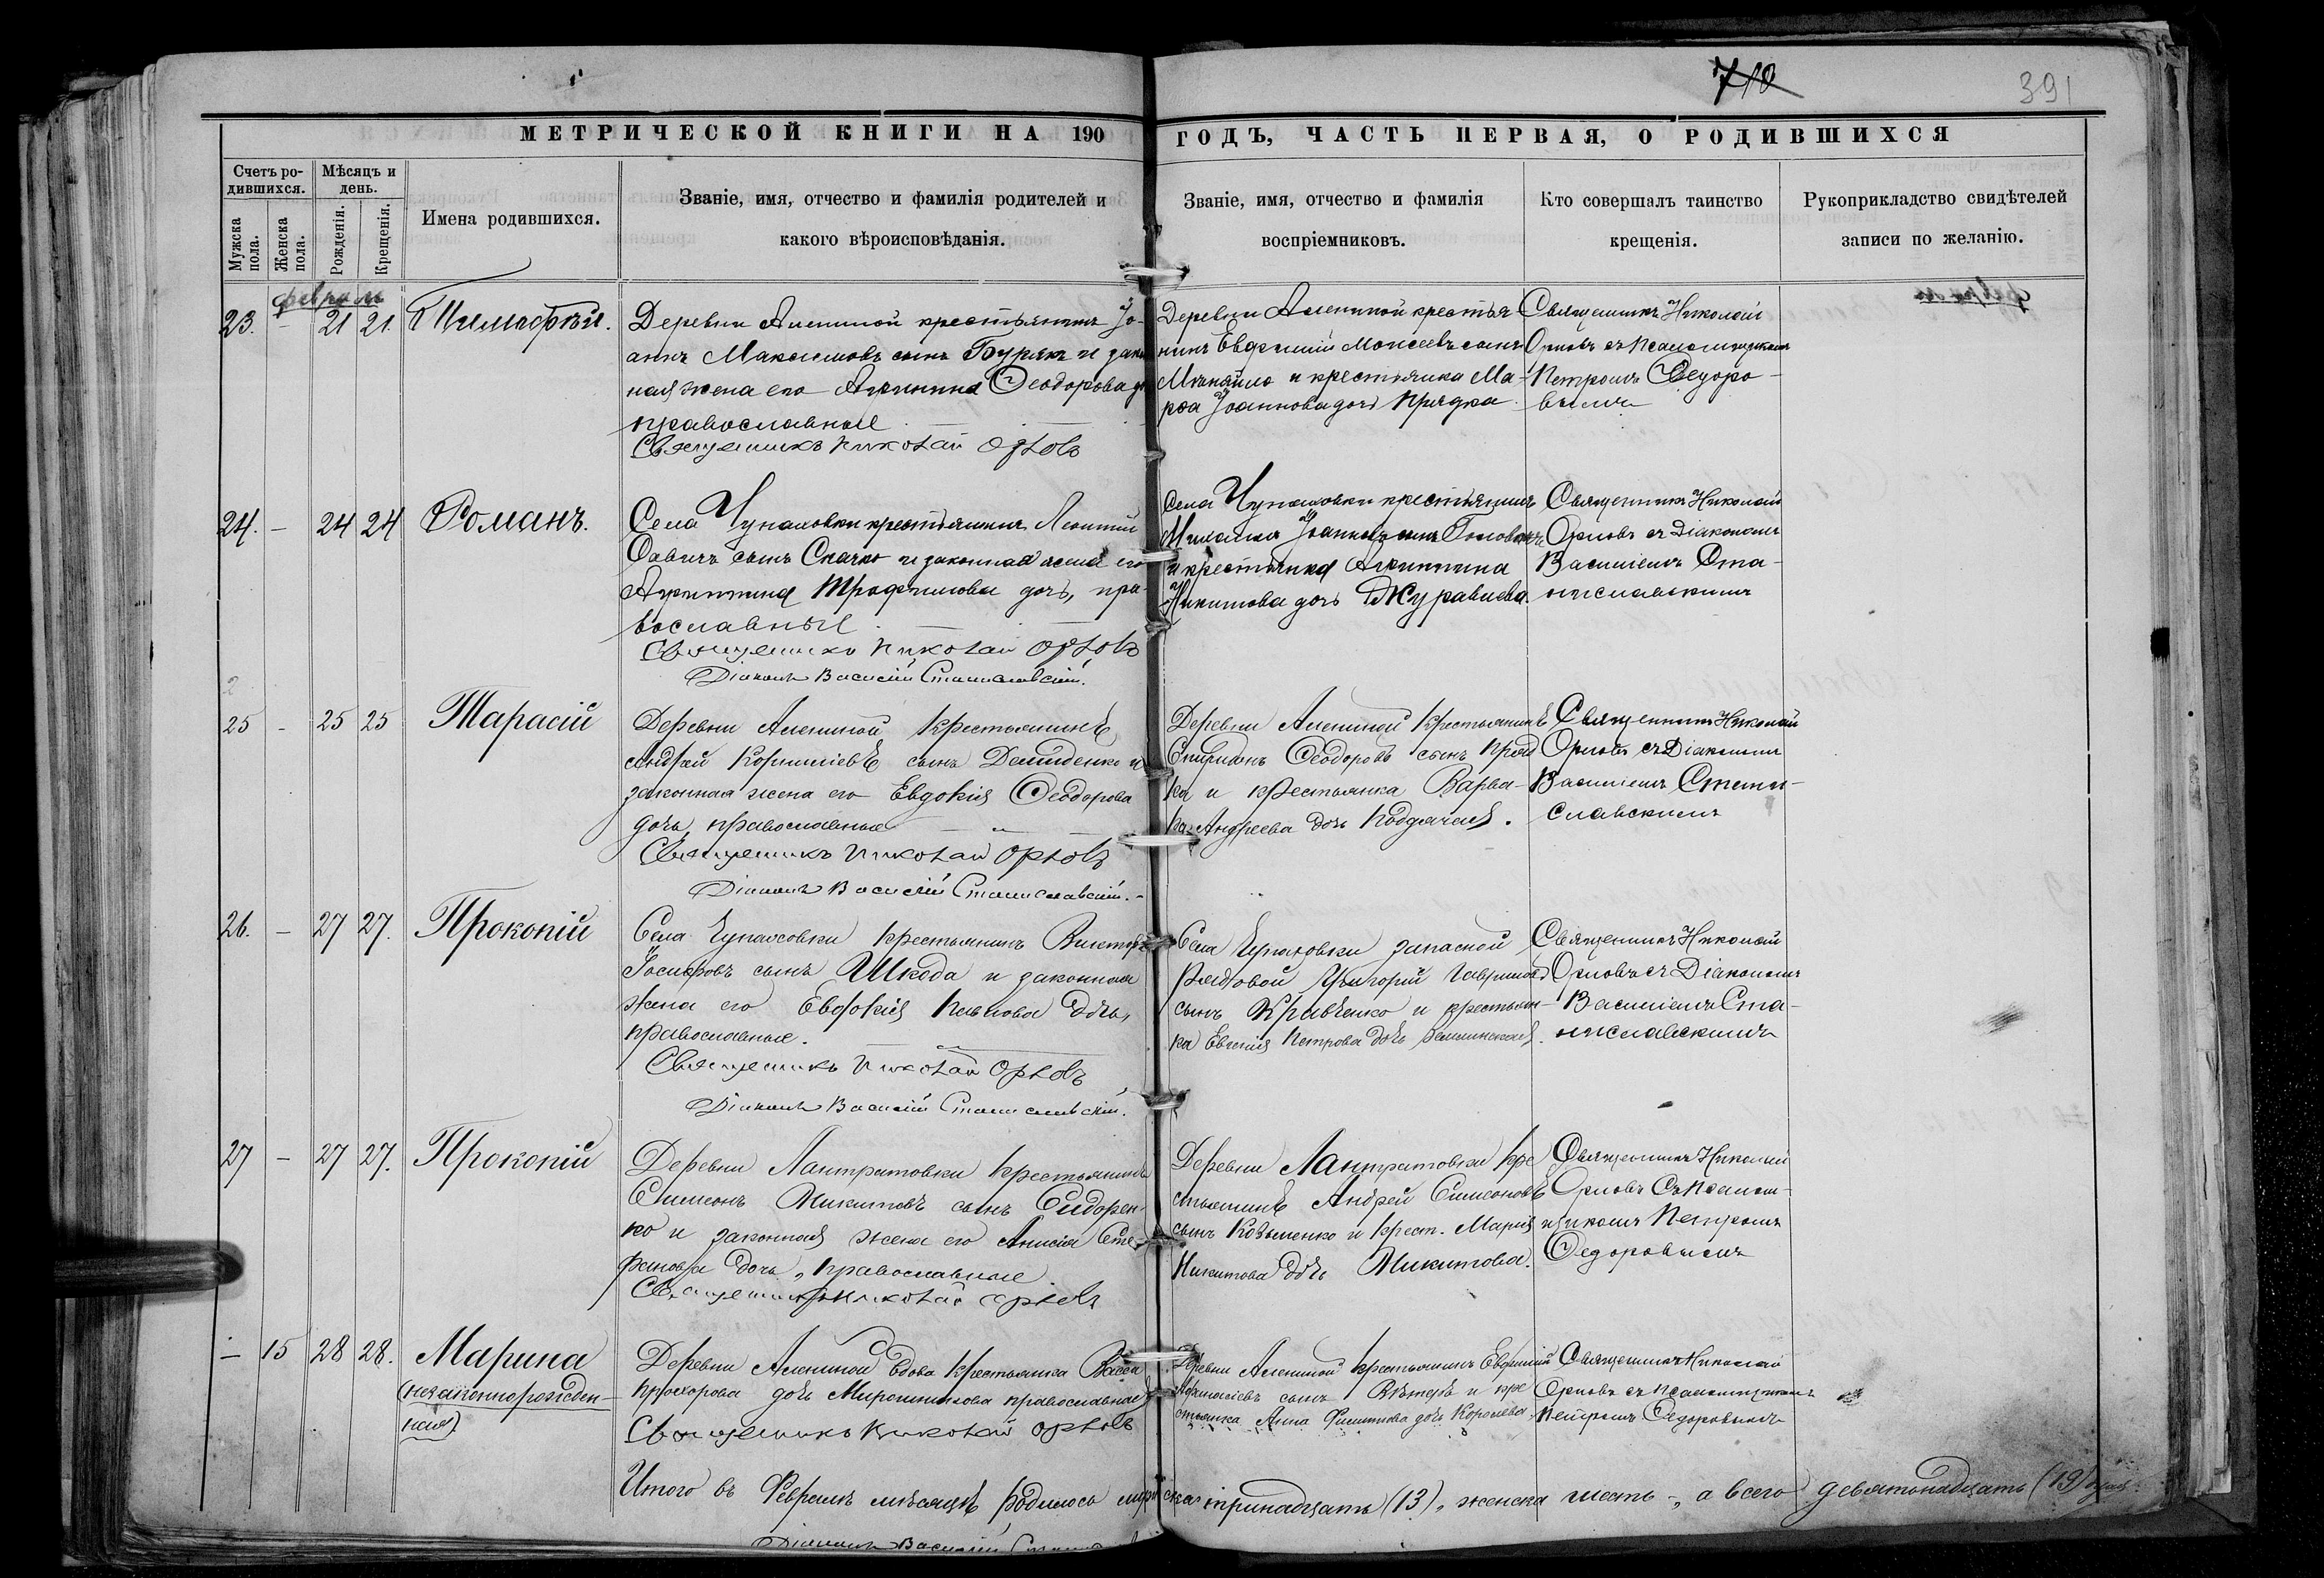 710
391
МЕТРИЧЕСКОЙ КНИГИ НА 190
ГОДЪ, ЧАСТЬ ПЕРВАЯ, О РОДИВШИХСЯ
Счетъ ро-
дившихся.
Мужска пола.
Женска пола.
Мѣсяцъ и
день.
Рожденія.
Крещенія.
Имена родившихся.
Званіе, имя, отчество и фамилія родителей и
какого вѣроисповѣданія.
Званіе, имя, отчество и фамилія
воспріемниковъ.
Кто совершалъ таинство
крещенія.
Рукоприкладство свидѣтелей
записи по желанію.
февраль
23. – 21 21. Тимофѣй.
Деревни Алениной крестьянинъ Іо-
аннъ Максимовъ сынъ Буряк и закон
ная жена его Агрипина Ѳеодорова до
православные
Священникъ Николай Орловъ
Деревни Алениной крестья-
нинъ Евфимій Моисеевъ сынъ
и крестьянка Ма-
Іоаннова дочь Прядка
Священникъ Николай
Орловъ съ псаломщикомъ
Петромъ Ѳедоро-
вымъ
24. – 24 24 Романъ.
Села Чупаховки крестьянинъ Леонтій
Саввичъ сынъ Скачко и законная жена его
Агриппина Трофимова дочь, пра-
вославные
Священникъ Николай Орловъ
Діаконъ Василій Станиславскій.
Села Чупаховки крестьянинъ
Іоанновъ сынъ
и крестьянка Агриппина
Никитова дочь Журавлева.
Священникъ Николай
Орловъ съ Діакономъ
Василіемъ Ста-
ниславскимъ
25 – 25 25 Тарасій
Деревни Алениной крестьянинъ
Андрей Корниліевъ сынъ Демиденко и
законная жена его Евдокія Ѳеодорова
дочь, православные
Священникъ Николай Орловъ
Діаконъ Василій Станиславскій.
Деревни Алениной крестьянинъ
Спиридонъ Ѳеодоровъ сынъ Пряд
ка и крестьянка Варва-
ра Андреева дочь
Священникъ Николай
Орловъ съ Діакономъ
Василіемъ Стани-
славскимъ
26. – 27 27. Прокопій
Села Чупаховки крестьянинъ Викторъ
Іосифовъ сынъ Шкода и законная
жена его Евдокія Павлова дочь,
православные.
Священникъ Николай Орловъ
Діаконъ Василій Станиславскій.
Села Чупаховки запасной
рядовой Григорій Гавриловъ
сынъ Кравченко и крестьян-
ка Евгенія Петрова дочь
Священникъ Николай
Орловъ съ Діакономъ
Василіемъ Ста-
ниславскимъ
27 – 27 27. Прокопій
Деревни Лантратовки крестьянинъ
Симеонъ Никитовъ сынъ Сидорен-
ко и законная жена его Анисія Сте-
фанова дочь, православные.
Священникъ Николай Орловъ
Деревни Лантратовки кре
стьянинъ Андрей Симеоновъ
сынъ Козьменко и крест. Марія
Никитова дочь Микитова.
Священникъ Николай
Орловъ съ псалом-
щикомъ Петромъ
Ѳедоровымъ
– 15 28 28. Марина
(незаконнорожден-
ная)
Деревни Алениной вдова крестьянка Васса
Прохорова дочь Мирошникова православная
Священникъ Николай Орловъ
Деревни Алениной крестьянинъ Евфимій
сынъ и кре
стьянка Анна Филиппова дочь Королева.
Священникъ Николай
Орловъ съ псаломщикомъ
Петромъ Ѳедоровымъ
Итого въ Февралѣ мѣсяцѣ родилось мужска тринадцать (13), женска шесть, а всего девятнадцать (19) душъ.
Діаконъ Василій